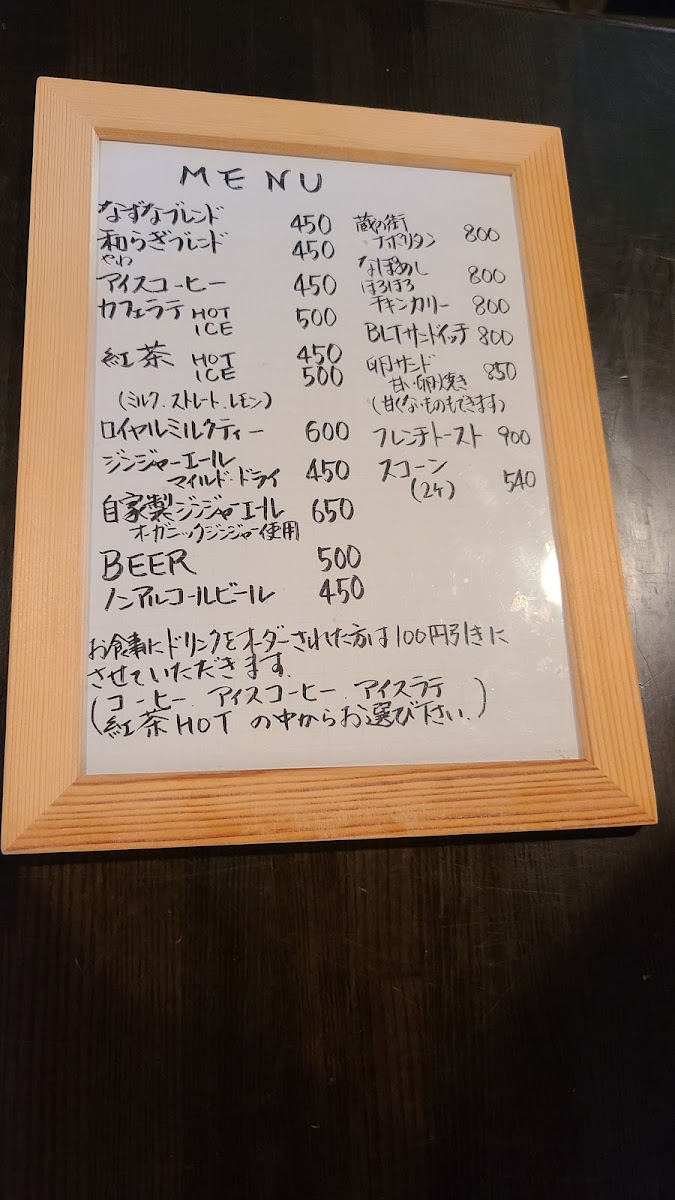 MENU
なずなブレンド 450
和らぎブレンド 450
やわ
アイスコーヒー 450
カフェラテ HOT
ICE 500
紅茶 HOT 450
ICE 500
(ミルク.ストレート.レモン)
ロイヤルミルクティー 600
ジンジャーエール
マイルド・ドライ 450
自家製ジンジャーエール 650
オーガニックジンジャー使用
BEER 500
ノンアルコールビール 450
蔵の街
ナポリタン 800
なぽめし 800
ほろほろ
チキンカリー 800
BLTサンドイッチ 800
卵サンド
甘い卵焼き 850
(甘くないものもできます)
フレンチトースト 900
スコーン
(2ケ) 540
お食事にドリンクをオーダーされた方は100円引きに
させていただきます.
(コーヒー.アイスコーヒー.アイスラテ
紅茶HOTの中からお選び下さい.)